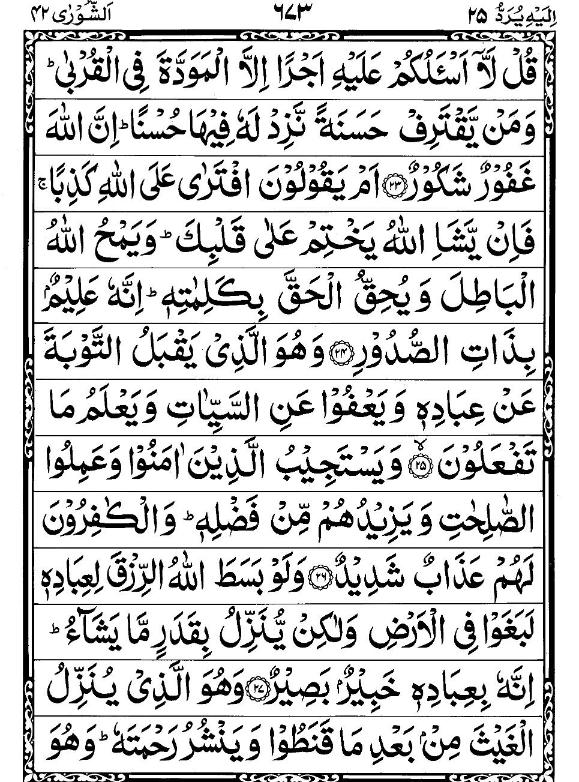 اِلَيْهِ يُرَدُّ ٢٥ ٦٧٣ اَلشُّوْرٰى ٤٢
قُلْ لَّاۤ اَسْـَٔلُكُمْ عَلَيْهِ اَجْرًا اِلَّا الْمَوَدَّةَ فِى الْقُرْبٰىؕ
وَمَنْ يَّقْتَرِفْ حَسَنَةً نَّزِدْ لَهٗ فِيْهَا حُسْنًاؕ اِنَّ اللّٰهَ
غَفُوْرٌ شَكُوْرٌ ﴿٢٣﴾ اَمْ يَقُوْلُوْنَ افْتَرٰى عَلَى اللّٰهِ كَذِبًاۚ
فَاِنْ يَّشَاِ اللّٰهُ يَخْتِمْ عَلٰى قَلْبِكَؕ وَيَمْحُ اللّٰهُ
الْبَاطِلَ وَيُحِقُّ الْحَقَّ بِكَلِمٰتِهٖؕ اِنَّهٗ عَلِيْمٌۢ
بِذَاتِ الصُّدُوْرِ ﴿٢٤﴾ وَهُوَ الَّذِىْ يَقْبَلُ التَّوْبَةَ
عَنْ عِبَادِهٖ وَيَعْفُوْا عَنِ السَّيِّاٰتِ وَيَعْلَمُ مَا
تَفْعَلُوْنَ ﴿٢٥﴾ۙ وَيَسْتَجِيْبُ الَّذِيْنَ اٰمَنُوْا وَعَمِلُوا
الصّٰلِحٰتِ وَيَزِيْدُهُمْ مِّنْ فَضْلِهٖؕ وَالْكٰفِرُوْنَ
لَهُمْ عَذَابٌ شَدِيْدٌ ﴿٢٦﴾ وَلَوْ بَسَطَ اللّٰهُ الرِّزْقَ لِعِبَادِهٖ
لَبَغَوْا فِى الْاَرْضِ وَلٰكِنْ يُّنَزِّلُ بِقَدَرٍ مَّا يَشَآءُؕ
اِنَّهٗ بِعِبَادِهٖ خَبِيْرٌۢ بَصِيْرٌ ﴿٢٧﴾ وَهُوَ الَّذِىْ يُنَزِّلُ
الْغَيْثَ مِنْۢ بَعْدِ مَا قَنَطُوْا وَيَنْشُرُ رَحْمَتَهٗؕ وَهُوَ